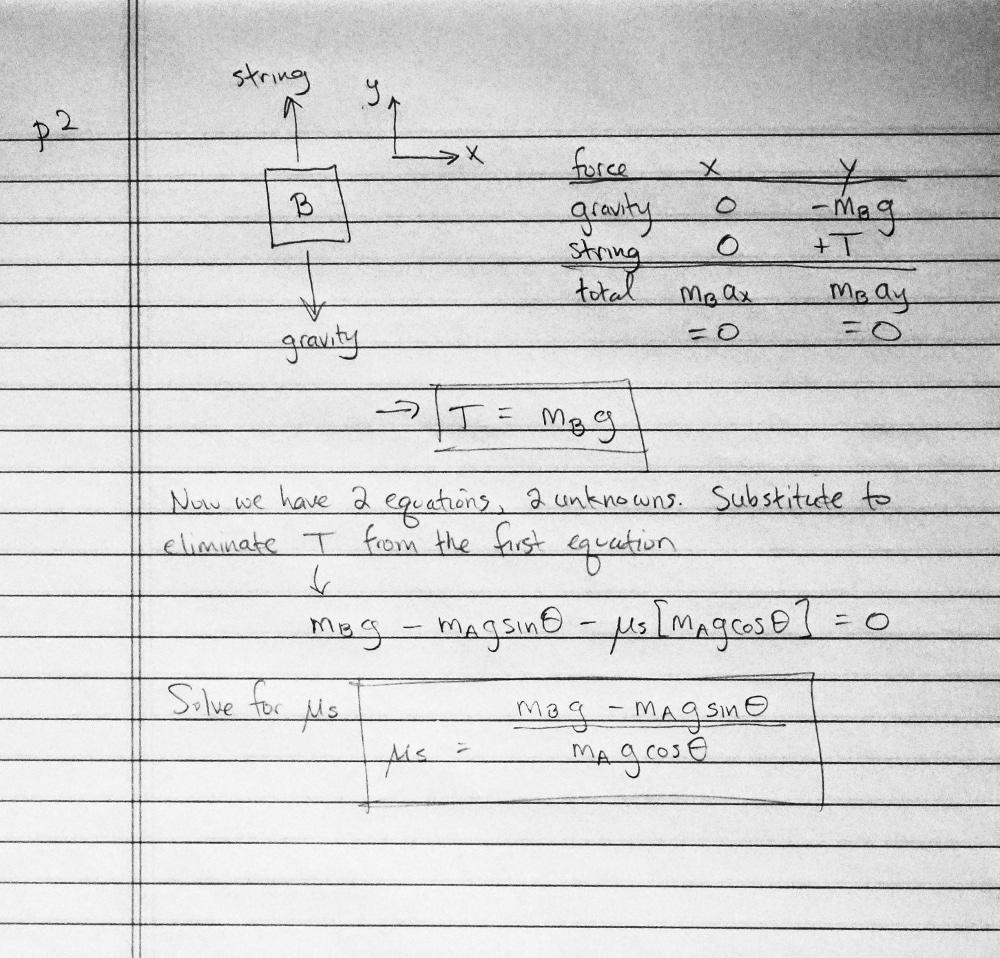 p2
string
y
x
B
gravity
force x y
gravity 0 -mBg
string 0 +T
total mBax mBay
=0 =0
→ T = mBg
Now we have 2 equations, 2 unknowns. Substitute to
eliminate T from the first equation
↓
mBg - mAgsinθ - μs[mAgcosθ] = 0
Solve for μs
mBg - mAgsinθ
μs =
mAgcosθ